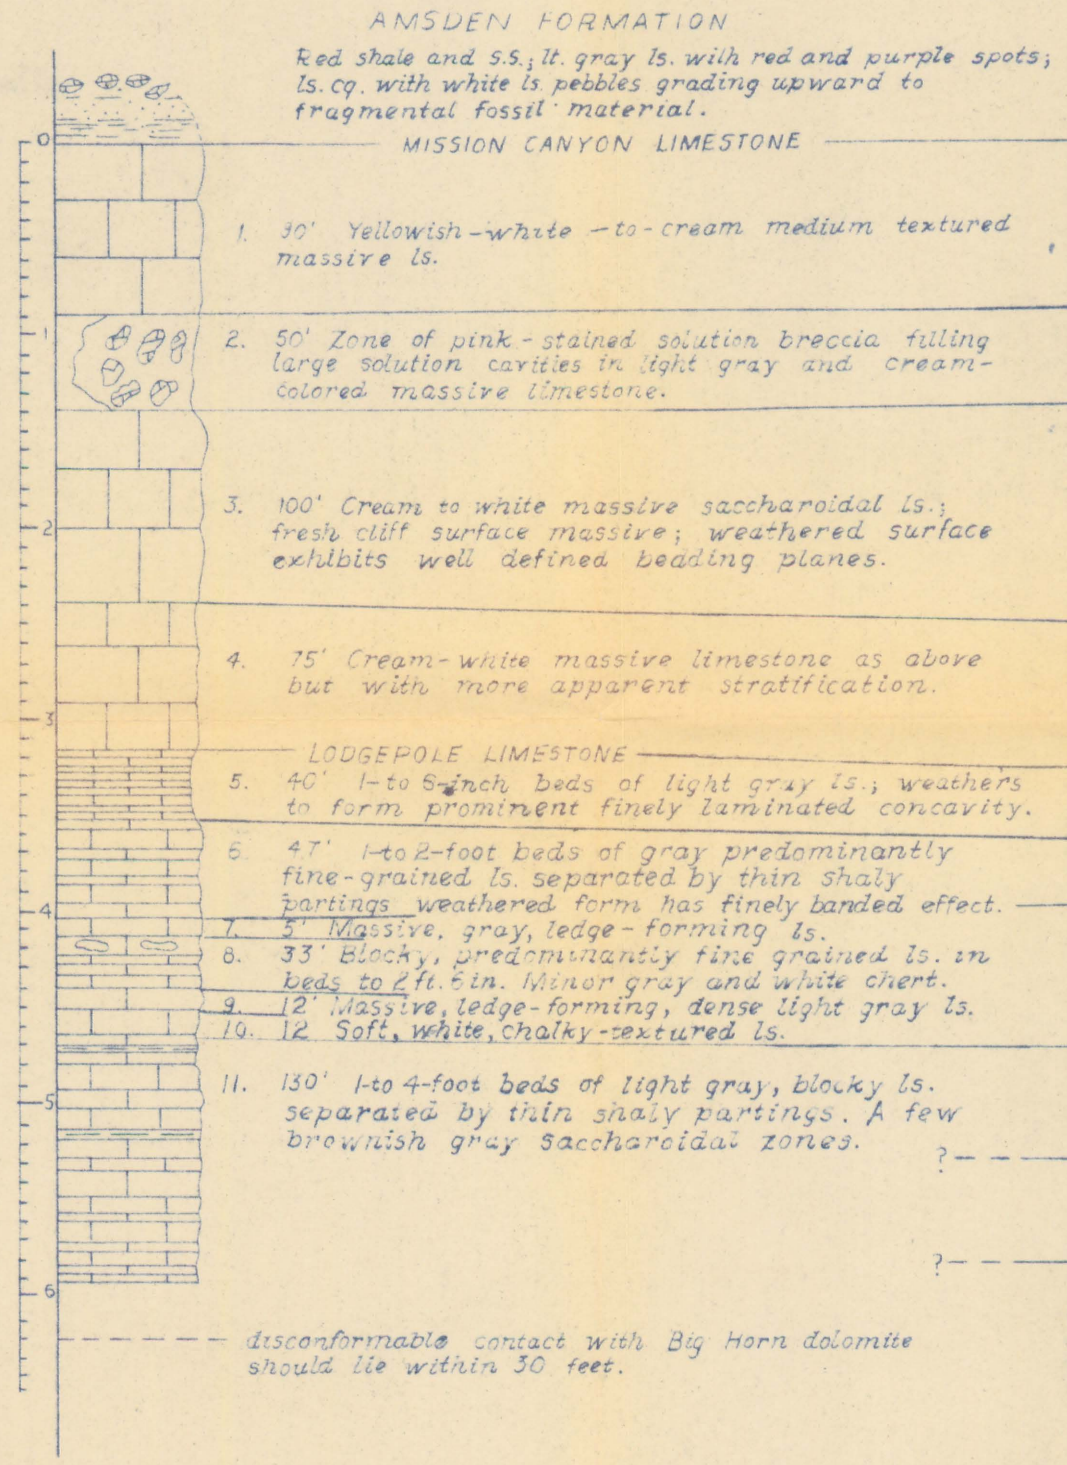 AMSDEN FORMATION
Red shale and s.s.; lt. gray ls. with red and purple spots;
ls. cg. with white ls. pebbles grading upward to
fragmental fossil material.
0
MISSION CANYON LIMESTONE
1. 90' Yellowish-white-to-cream medium textured
massive ls.
1
2. 50' Zone of pink-stained solution breccia filling
large solution cavities in light gray and cream-
colored massive limestone.
3. 100' Cream to white massive saccharoidal ls.;
2
fresh cliff surface massive; weathered surface
exhibits well defined bedding planes.
4. 75' Cream-white massive limestone as above
but with more apparent stratification.
3
LODGEPOLE LIMESTONE
5. 40' 1-to 8-inch beds of light gray ls.; weathers
to form prominent finely laminated concavity.
6. 47' 1-to 2-foot beds of gray predominantly
fine-grained ls. separated by thin shaly
4
partings weathered form has finely banded effect.
7. 5' Massive, gray, ledge-forming ls.
8. 33' Blocky, predominantly fine grained ls. in
beds to 2 ft. 6 in. Minor gray and white chert.
9. 12' Massive, ledge-forming, dense light gray ls.
10. 12 Soft, white, chalky-textured ls.
11. 130' 1-to 4-foot beds of light gray, blocky ls.
5
separated by thin shaly partings. A few
brownish gray saccharoidal zones.
?
?
6
disconformable contact with Big Horn dolomite
should lie within 30 feet.